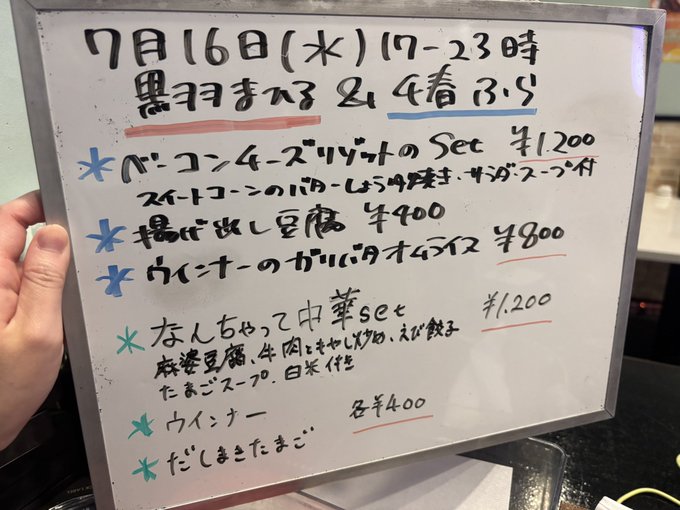 7月16日(水)17-23時
黒羽まへる & 4春ふら
*ベーコンチーズリゾットのSet ¥1.200
スイートコーンのバターしょうゆ焼き・サラダ・スープ付
*揚げ出し豆腐 ¥400
*ウインナーのガリバタオムライス ¥800
*なんちゃって中華set ¥1.200
麻婆豆腐、牛肉ともやし炒め、えび餃子
たまごスープ、白米付き
*ウインナー 各¥400
*だしまきたまご